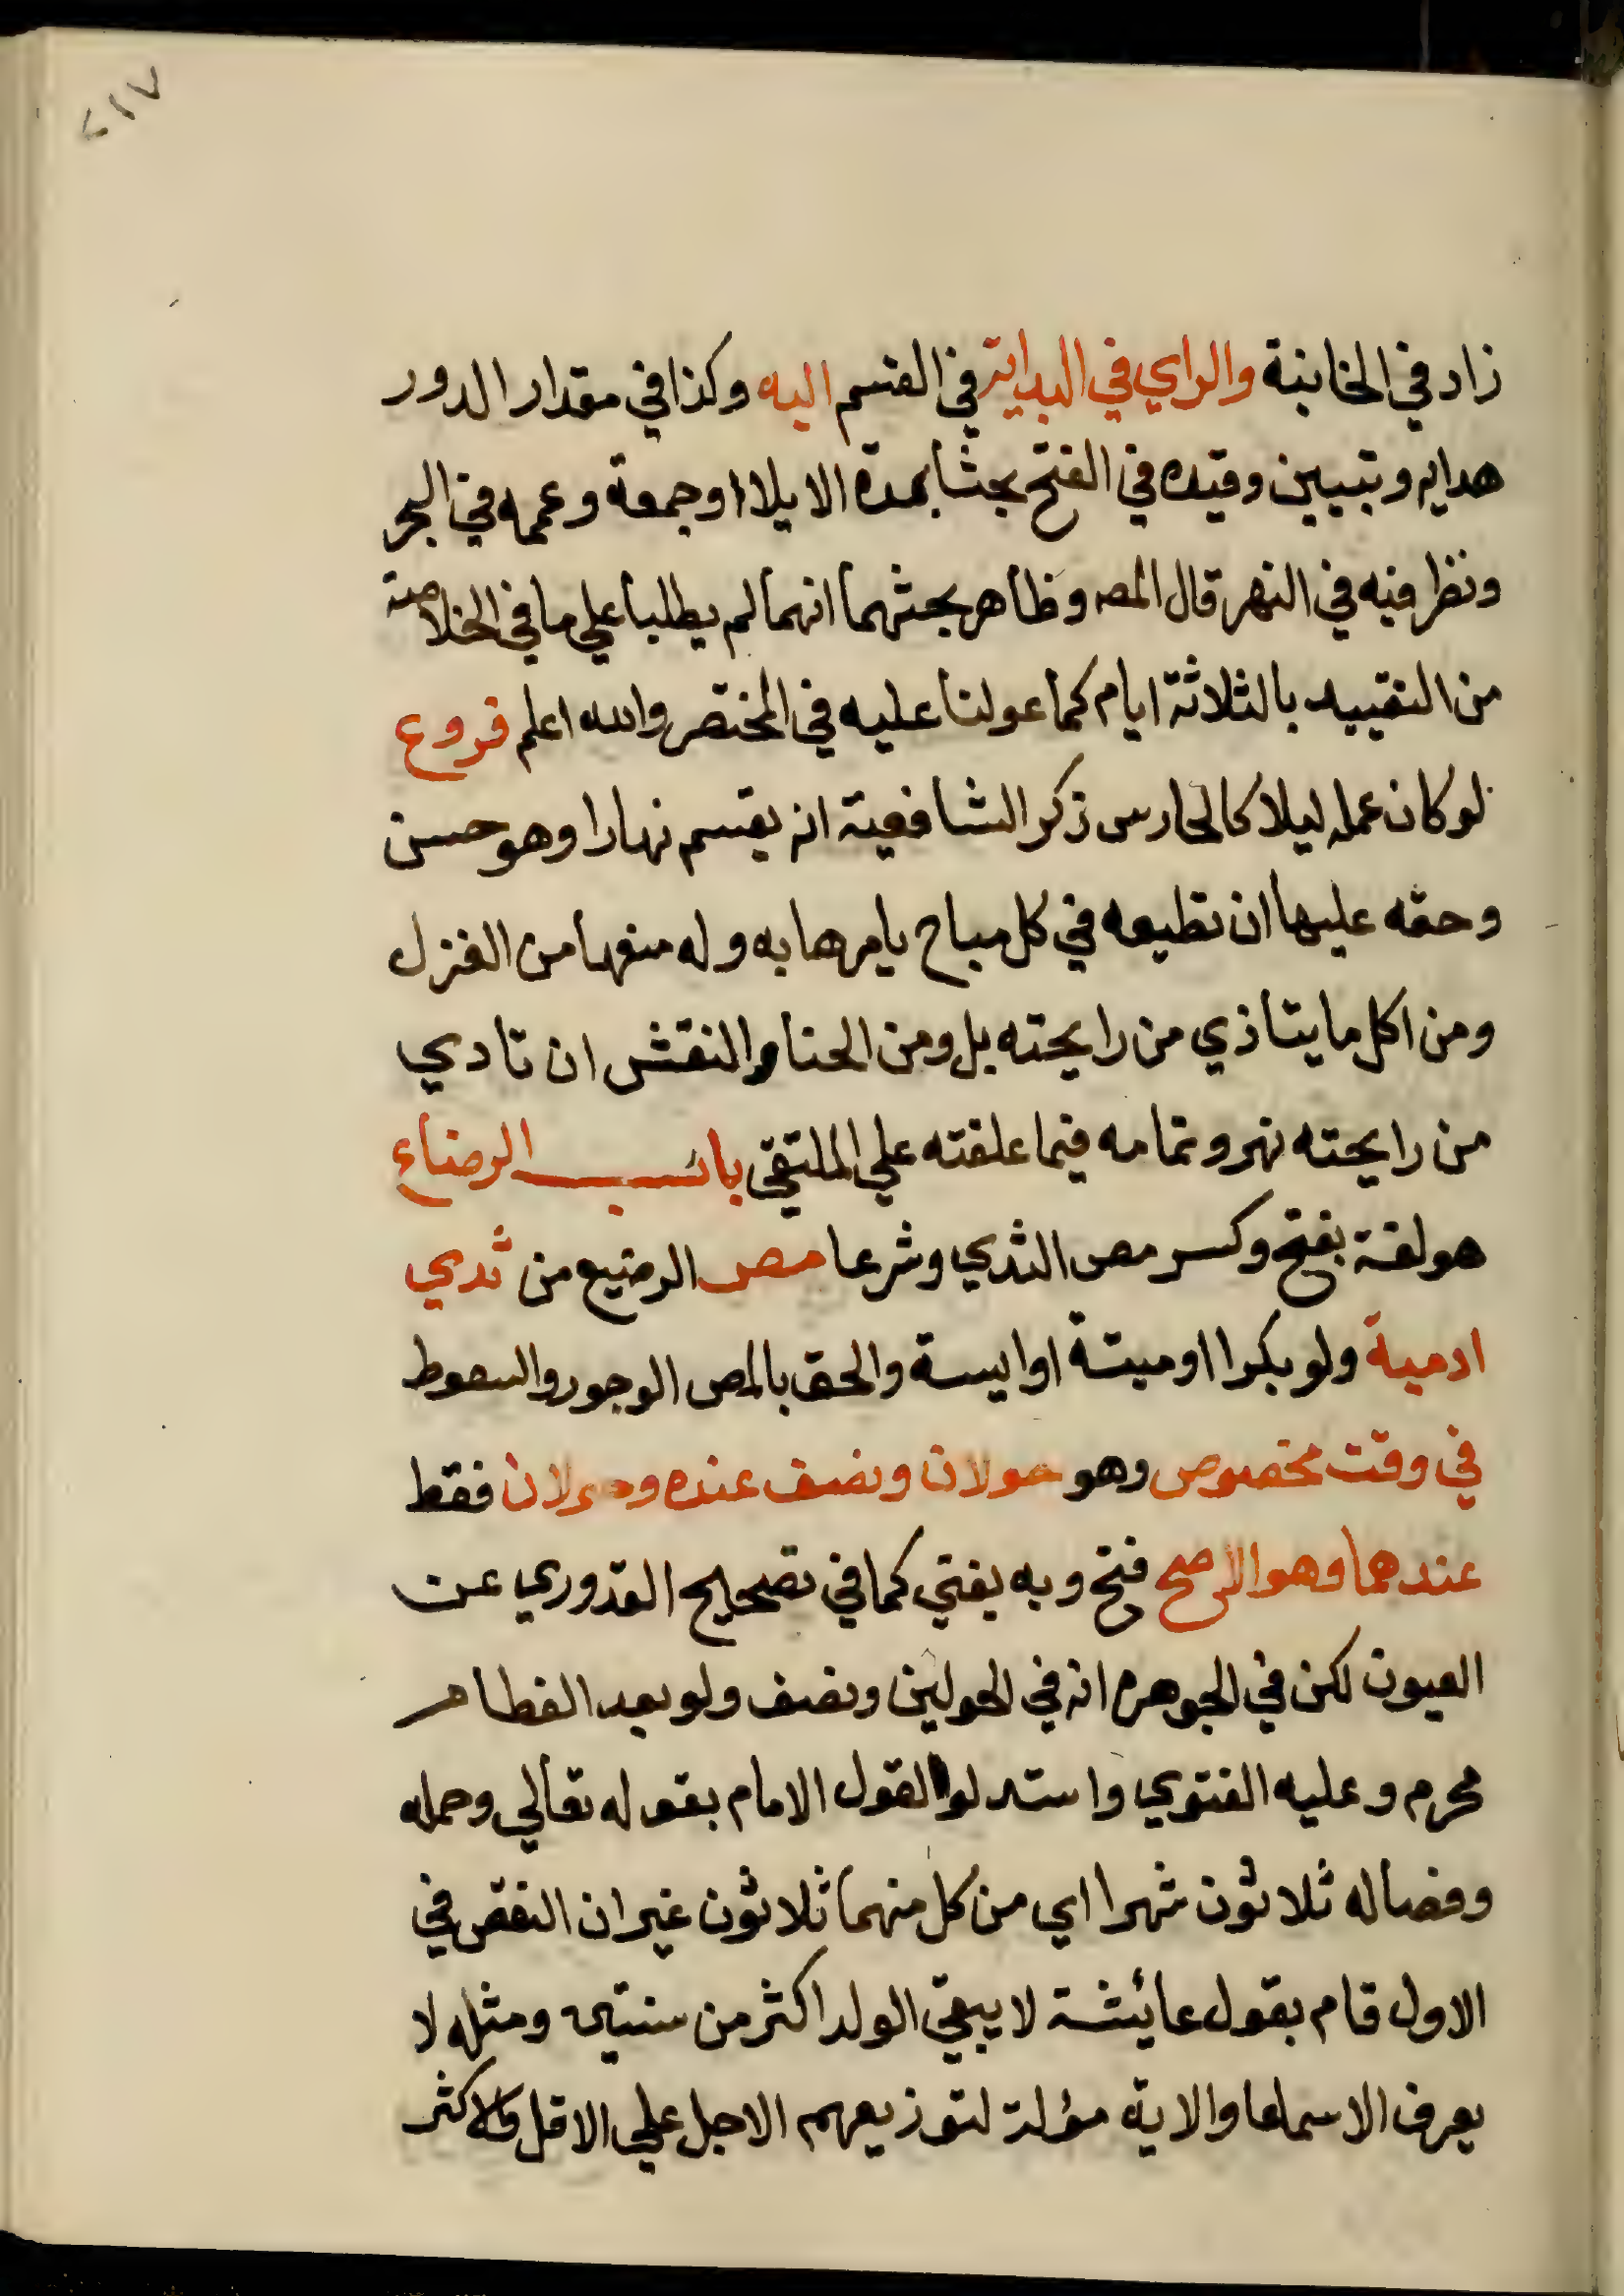 ٢١٧
زاد في الخانية والراي في البداية في القسم اليه وكذا في مقدار الدور
هدايه وتبيين وقيده في الفتح بحثا بمدة الايلاء او جمعة وعممه في البحر
ونظر فيه في النهر قال المصـ وظاهر بحثهما انهما لم يطلبا علي ما في الخلاصة
من التقييد بالثلاثة ايام كما عولنا عليه في المختصر والله اعلم فروع
لو كان عمله ليلا كالحارس ذكر الشافعية انه يقسم نهارا وهو حسن
وحقه عليها ان تطيعه في كل مباح يامرها به وله منعها من الغزل
ومن اكل ما يتاذي من رايحته بل ومن الحنا والنقش ان تادي
من رايحته نهر وتمامه فيما علقته علي الملتقي باب الرضاع
هو لغة بفتح وكسر مص الثدي وشرعا مص الرضيع من ثدي
ادمية ولو بكرا او ميتة او ايسة والحق بالمص الوجور والسعوط
في وقت مخصوص وهو حولان ونصف عنده وحولان فقط
عندهما وهو الاصح فتح وبه يفتي كما في تصحيح القدوري عن
العيون لكن في الجوهره انه في الحولين ونصف ولو بعد الفطام
محرم وعليه الفتوي واستدلوا لقول الامام بقوله تعالي وحمله
وفصاله ثلاثون شهرا اي من كل منهما ثلاثون غير ان النقص في
الاول قام بقول عائشة لا يبقي الولد اكثر من سنتين ومثله لا
يعرف الا سماعا والاية مؤلة لتوزيعهم الاجل علي الاقل والاكثر